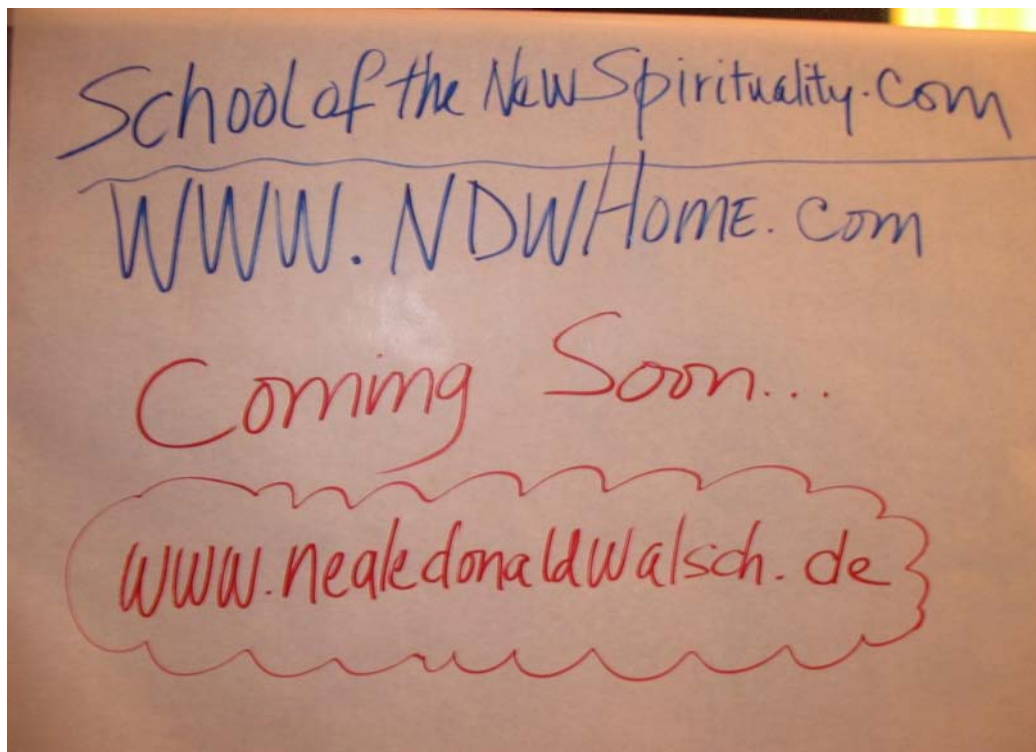 School of the New Spirituality.com
WWW.NDWHome.com
Coming Soon...
www.nealedonaldwalsch.de